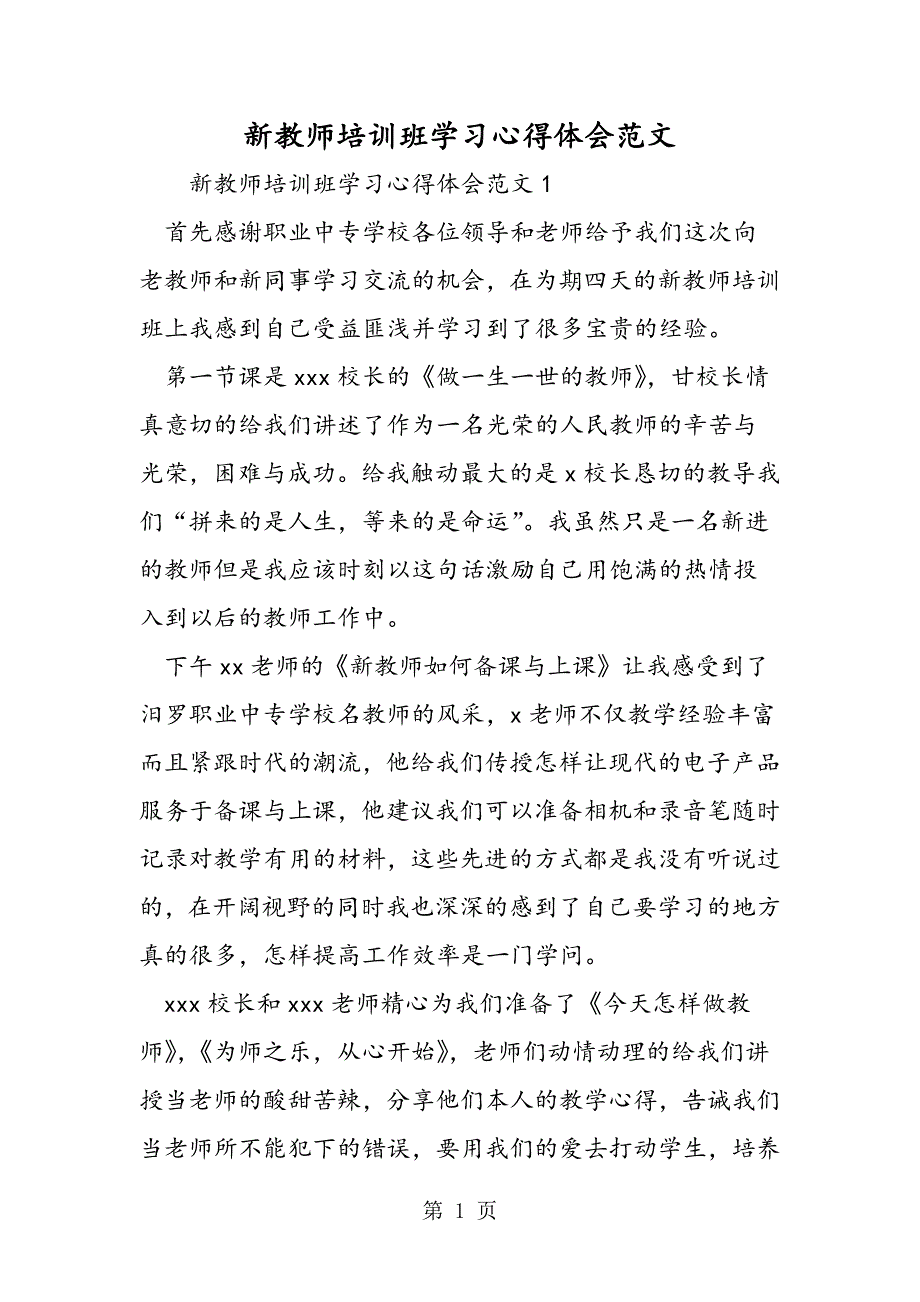 新教师培训班学习心得体会范文
新教师培训班学习心得体会范文1
首先感谢职业中专学校各位领导和老师给予我们这次向
老教师和新同事学习交流的机会，在为期四天的新教师培训
班上我感到自己受益匪浅并学习到了很多宝贵的经验。
第一节课是 xxx 校长的《做一生一世的教师》，甘校长情
真意切的给我们讲述了作为一名光荣的人民教师的辛苦与
光荣，困难与成功。给我触动最大的是 x 校长恳切的教导我
们“拼来的是人生，等来的是命运”。我虽然只是一名新进
的教师但是我应该时刻以这句话激励自己用饱满的热情投
入到以后的教师工作中。
下午 xx 老师的《新教师如何备课与上课》让我感受到了
汨罗职业中专学校名教师的风采，x 老师不仅教学经验丰富
而且紧跟时代的潮流，他给我们传授怎样让现代的电子产品
服务于备课与上课，他建议我们可以准备相机和录音笔随时
记录对教学有用的材料，这些先进的方式都是我没有听说过
的，在开阔视野的同时我也深深的感到了自己要学习的地方
真的很多，怎样提高工作效率是一门学问。
xxx 校长和 xxx 老师精心为我们准备了《今天怎样做教
师》，《为师之乐，从心开始》，老师们动情动理的给我们讲
授当老师的酸甜苦辣，分享他们本人的教学心得，告诫我们
当老师所不能犯下的错误，要用我们的爱去打动学生，培养
第 1 页